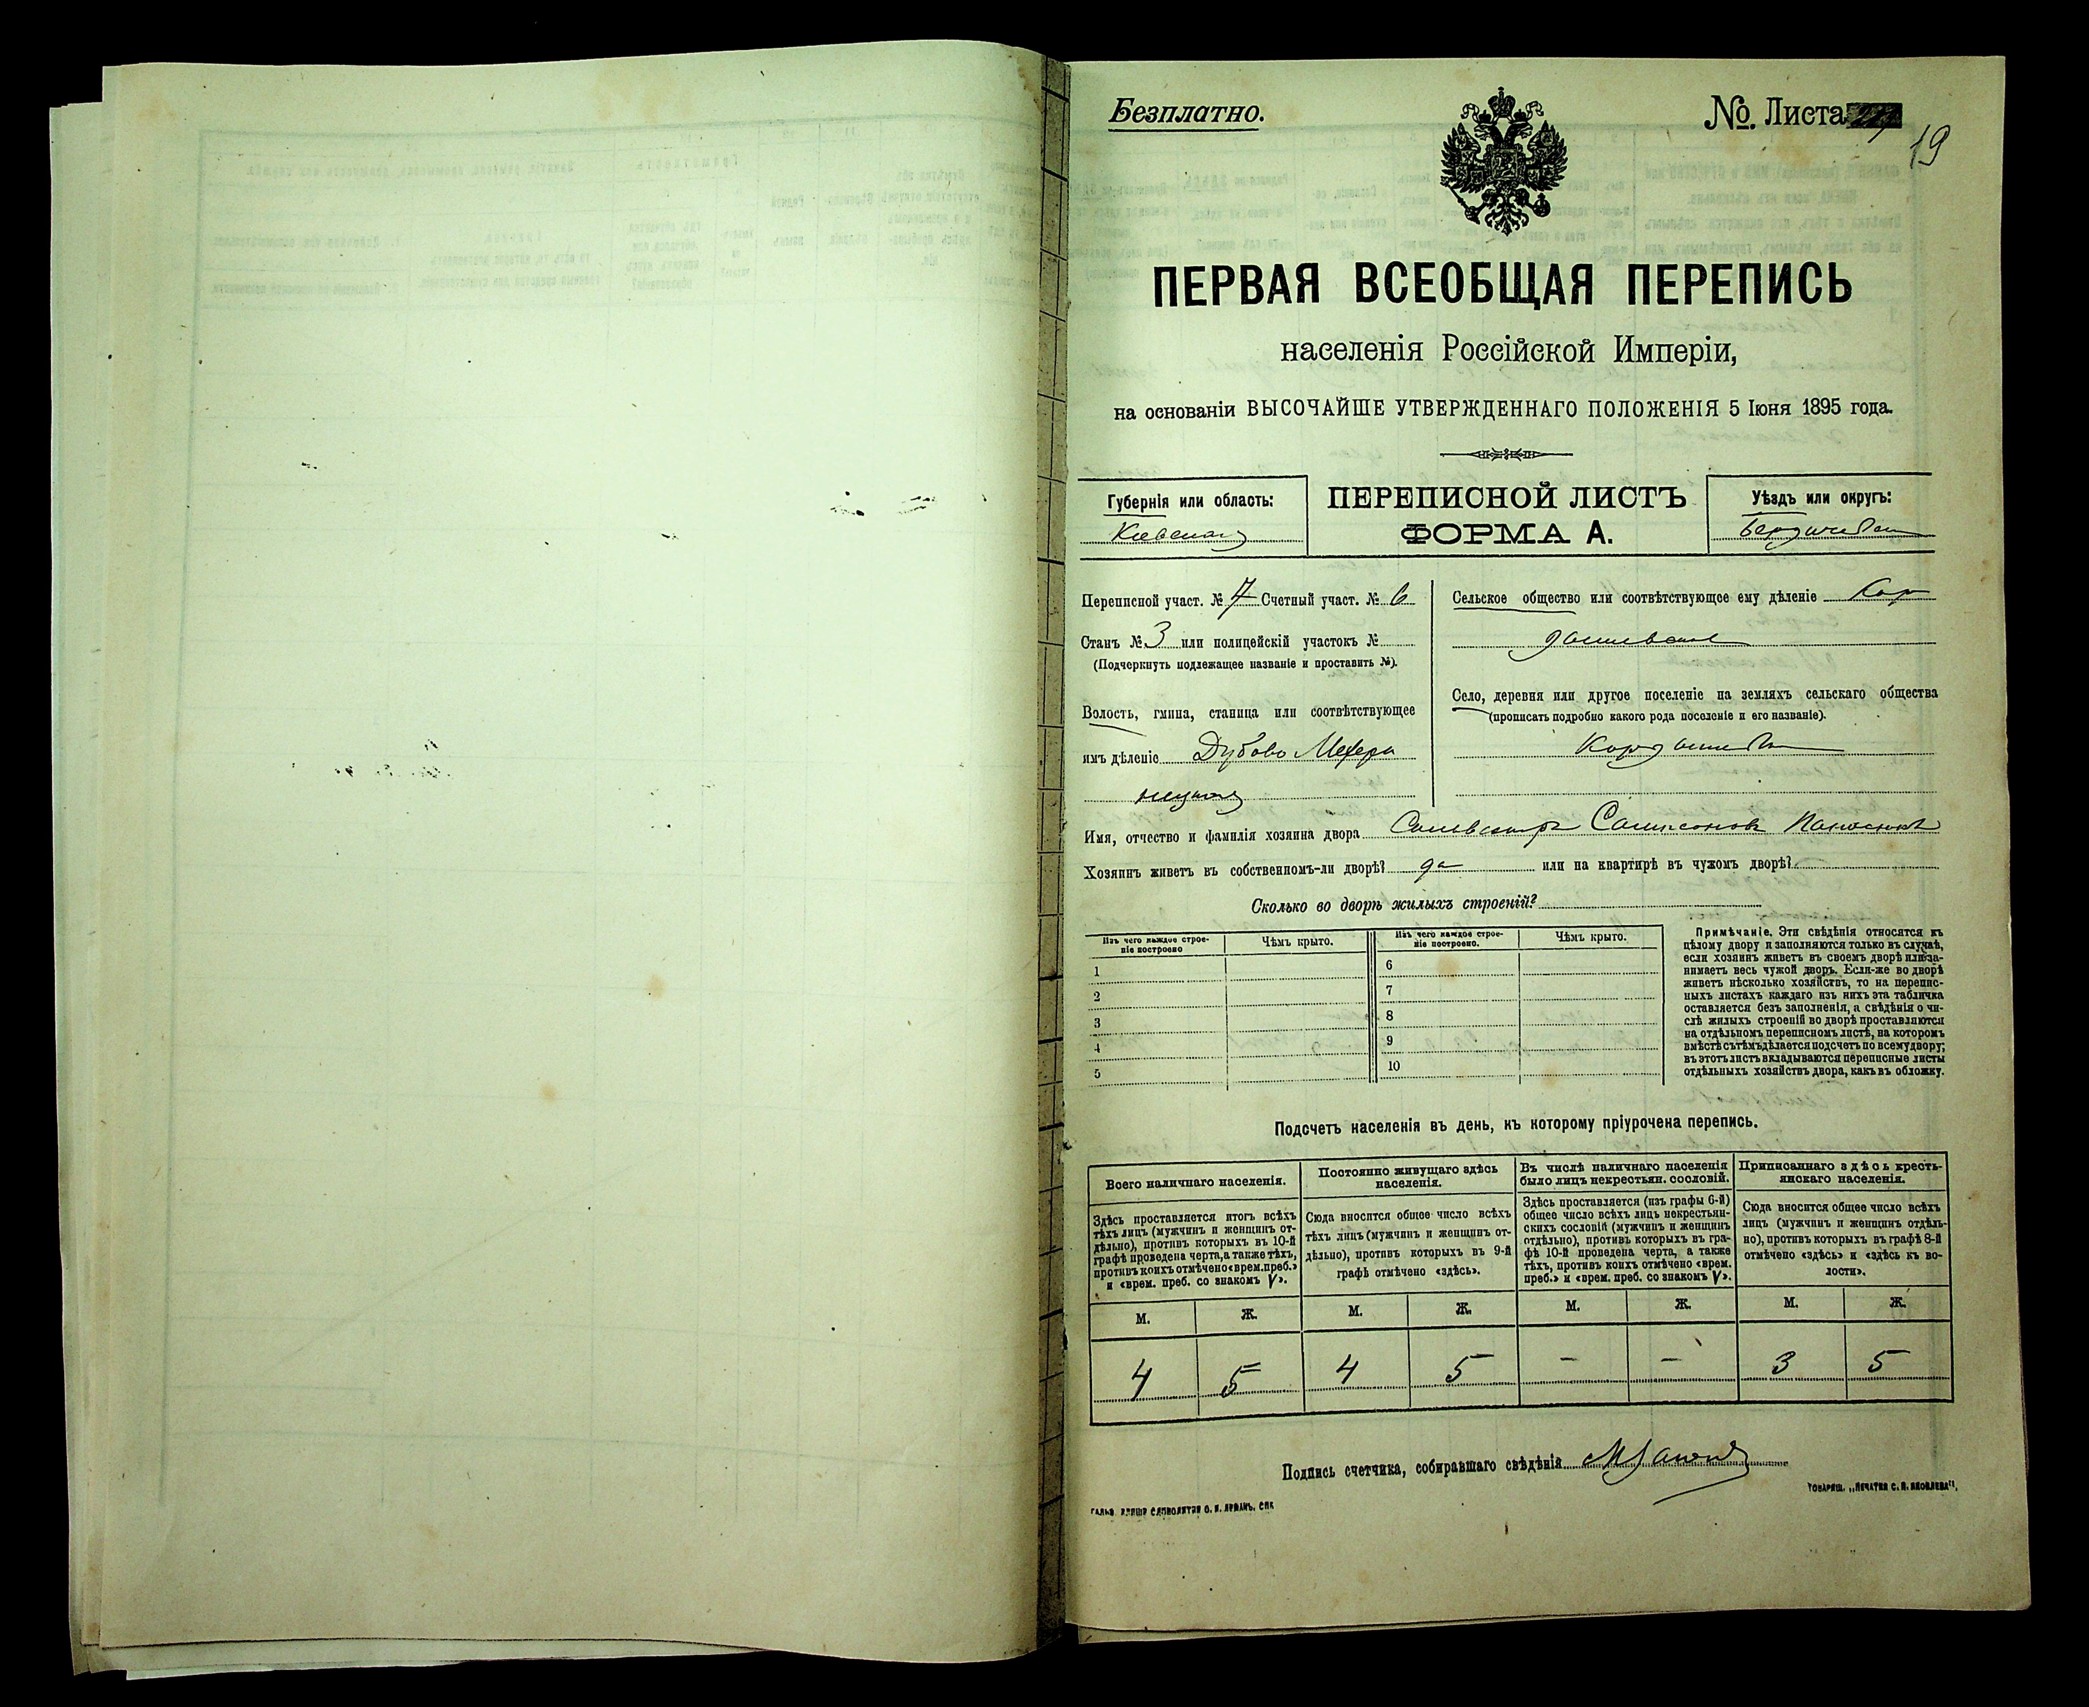 Безплатно.
№. Листа
19
ПЕРВАЯ ВСЕОБЩАЯ ПЕРЕПИСЬ
населенія Россійской Имперіи,
на основаніи ВЫСОЧАЙШЕ УТВЕРЖДЕННАГО ПОЛОЖЕНІЯ 5 Іюня 1895 года.
Губернія или область:
Кіевская
ПЕРЕПИСНОЙ ЛИСТЪ
ФОРМА А.
Уѣздъ или округъ:
Переписной участ. № 7 Счетный участ. № 6
Станъ № 3 или полицейскій участокъ №
(Подчеркнуть подлежащее названіе и проставить №).
Волость, гмина, станица или соотвѣтствующее
имъ дѣленіе Дубово
Сельское общество или соотвѣтствующее ему дѣленіе Кор
дышевское
Село, деревня или другое поселеніе на земляхъ сельскаго общества
(прописать подробно какого рода поселеніе и его названіе).
Кордышевка
Имя, отчество и фамилія хозяина двора Сильвестръ Самсоновъ
Хозяинъ живетъ въ собственномъ-ли дворѣ? да или на квартирѣ въ чужомъ дворѣ?
Сколько во дворѣ жилыхъ строеній?
Изъ чего каждое строе-
ніе построено
Чѣмъ крыто.
Изъ чего каждое строе-
ніе построено.
Чѣмъ крыто.
1
2
3
4
5
6
7
8
9
10
Примѣчаніе. Эти свѣдѣнія относятся къ
цѣлому двору и заполняются только въ случаѣ,
если хозяинъ живетъ въ своемъ дворѣ или за-
нимаетъ весь чужой дворъ. Если-же во дворѣ
живетъ нѣсколько хозяйствъ, то на перепис-
ныхъ листахъ каждаго изъ нихъ эта табличка
оставляется безъ заполненія, а свѣдѣнія о чи-
слѣ жилыхъ строеній во дворѣ проставляются
на отдѣльномъ переписномъ листѣ, на которомъ
вмѣстѣ съ тѣмъ дѣлается подсчетъ по всему двору;
въ этотъ листъ вкладываются переписные листы
отдѣльныхъ хозяйствъ двора, какъ въ обложку.
Подсчетъ населенія въ день, къ которому пріурочена перепись.
Всего наличнаго населенія.
Здѣсь проставляется итогъ всѣхъ
тѣхъ лицъ (мужчинъ и женщинъ от-
дѣльно), противъ которыхъ въ 10-й
графѣ проведена черта, а также тѣхъ,
противъ коихъ отмѣчено «врем. преб.»
и «врем. преб. со знакомъ V».
Постоянно живущаго здѣсь
населенія.
Сюда вносится общее число всѣхъ
тѣхъ лицъ (мужчинъ и женщинъ от-
дѣльно), противъ которыхъ въ 9-й
графѣ отмѣчено «здѣсь».
Въ числѣ наличнаго населенія
было лицъ некрестьян. сословій.
Здѣсь проставляется (изъ графы 6-й)
общее число всѣхъ лицъ некрестьян-
скихъ сословій (мужчинъ и женщинъ
отдѣльно), противъ которыхъ въ гра-
фѣ 10-й проведена черта, а также
тѣхъ, противъ коихъ отмѣчено «врем.
преб.» и «врем. преб. со знакомъ V».
Приписаннаго здѣсь кресть-
янскаго населенія.
Сюда вносится общее число всѣхъ
лицъ (мужчинъ и женщинъ отдѣль-
но), противъ которыхъ въ графѣ 8-й
отмѣчено «здѣсь» и «здѣсь къ во-
лости».
М. Ж. М. Ж. М. Ж. М. Ж.
4 5 4 5 – – 3 5
Подпись счетчика, собиравшаго свѣдѣнія
ТОВАРИЩ. „ПЕЧАТНЯ С. П. ЯКОВЛЕВА“.